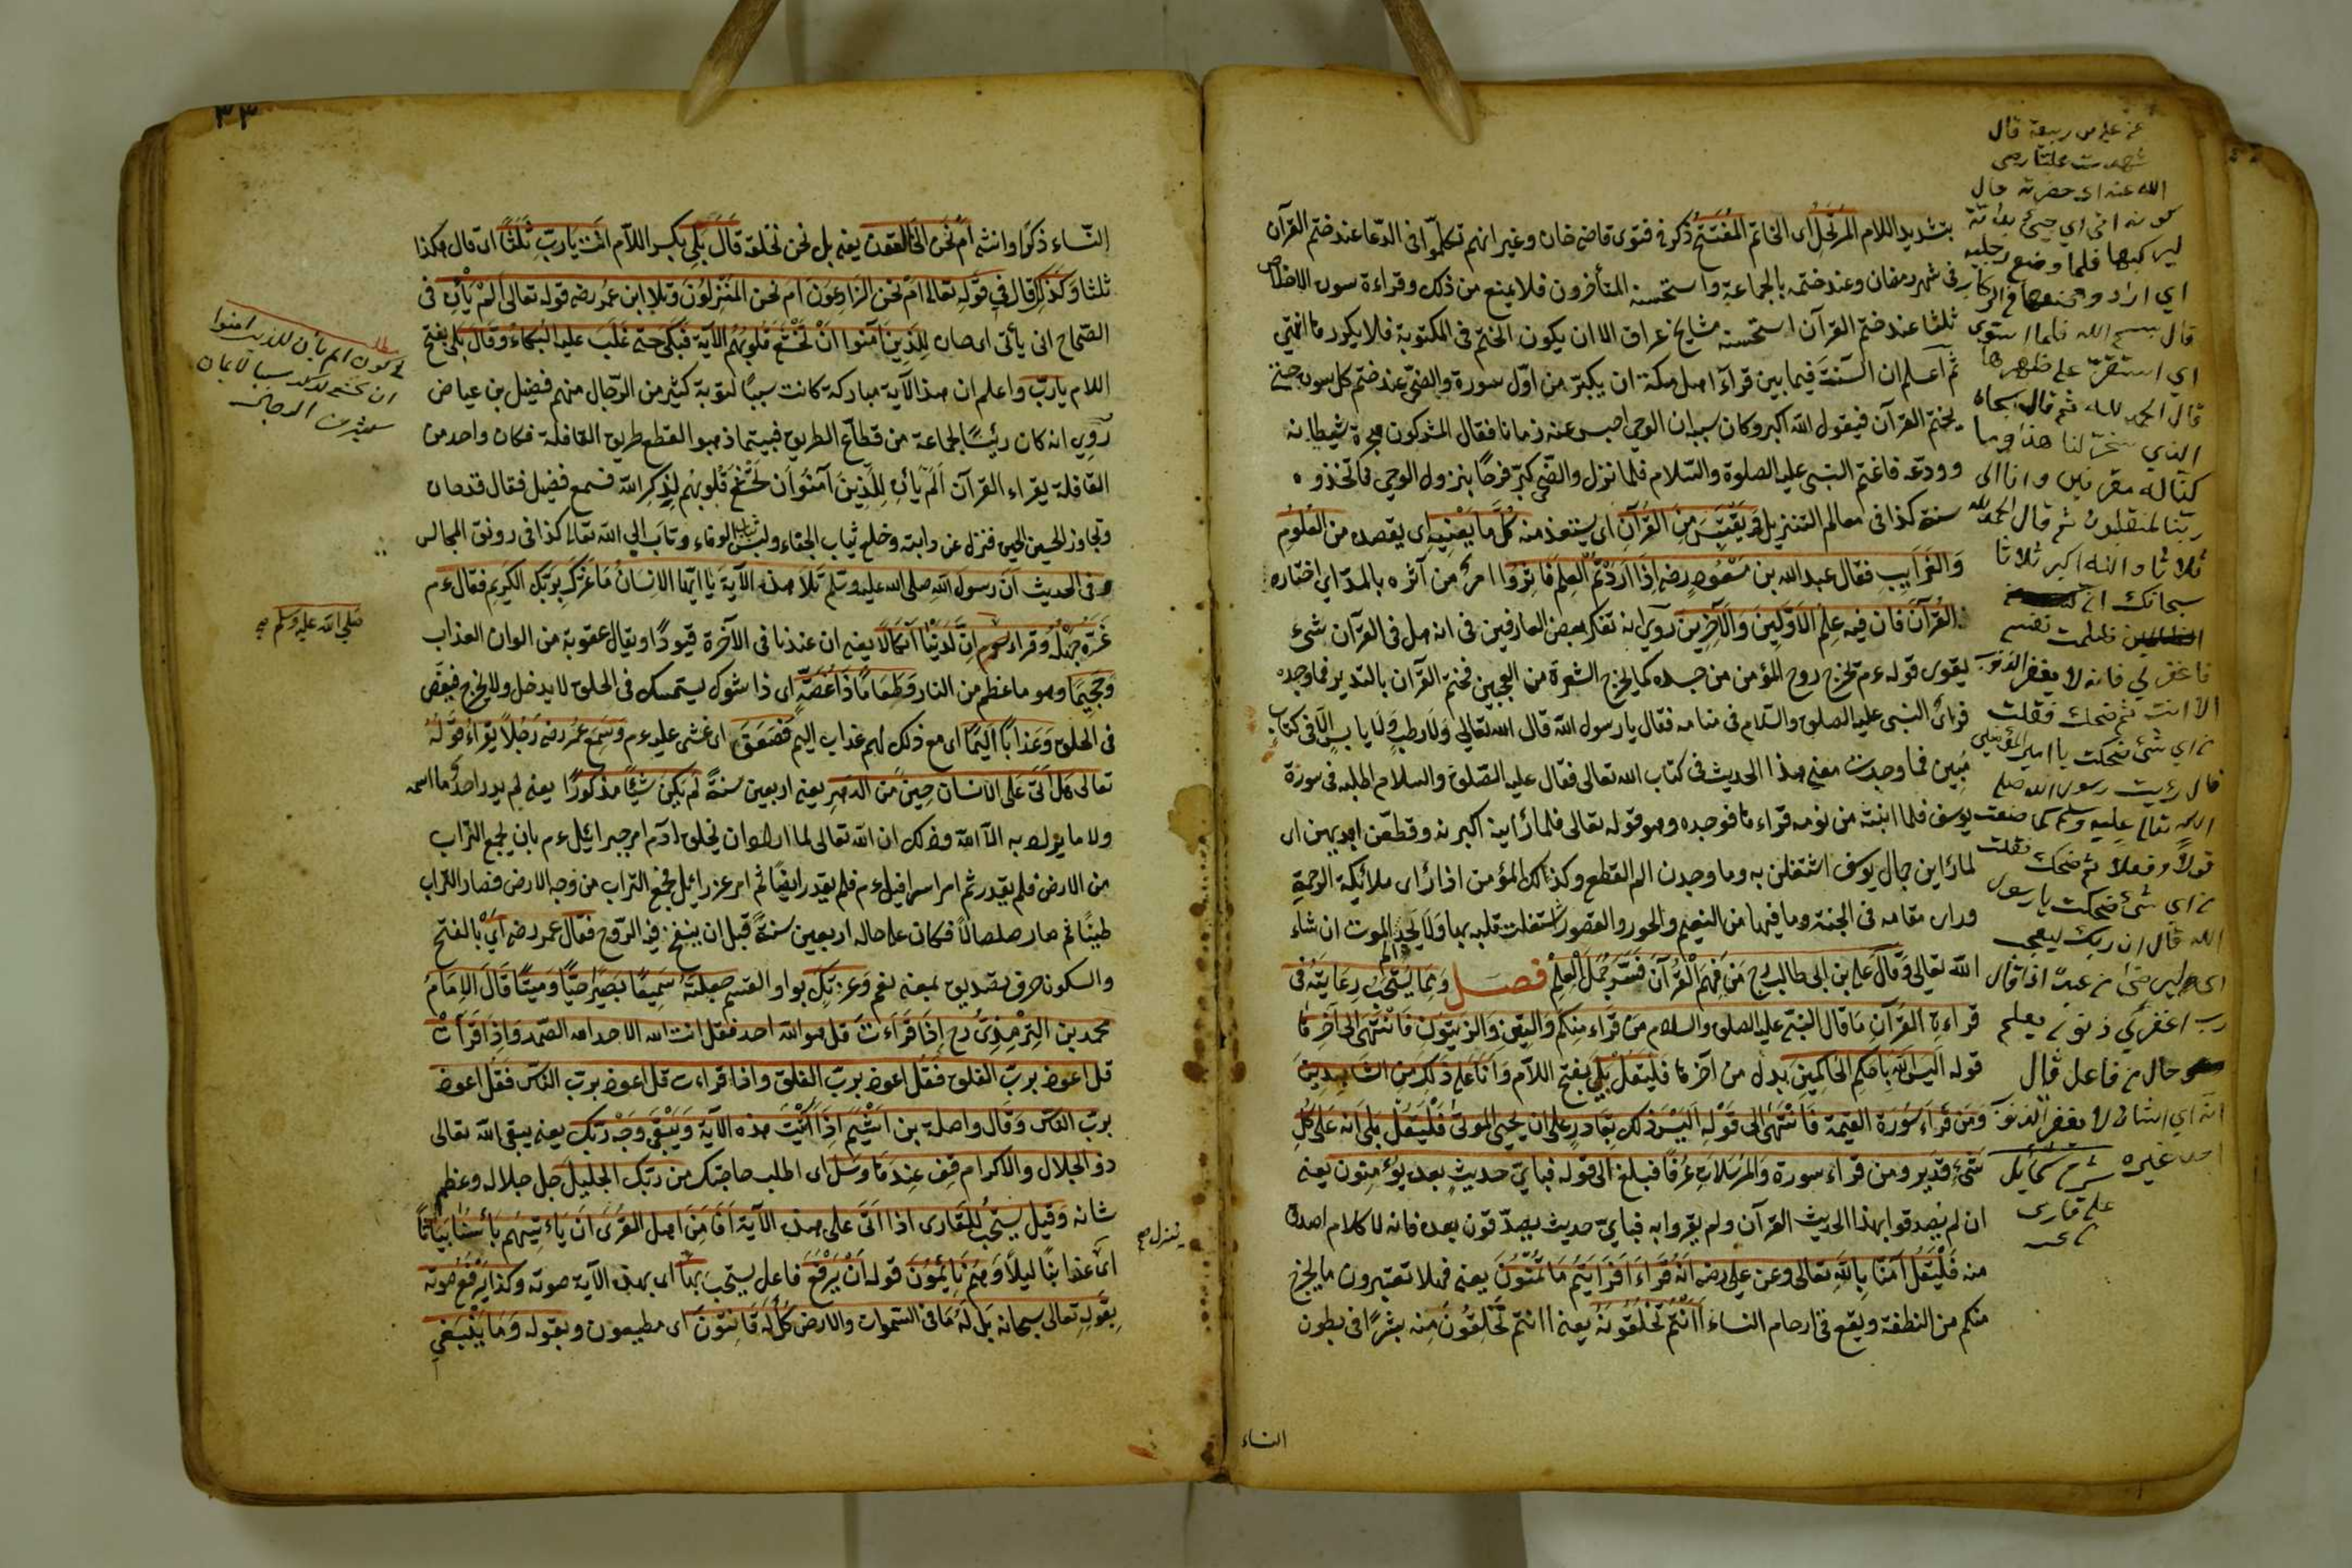 بتشديد اللام المرتحل اى الخاتم المفتتح ذكر فى فتوى قاضى خان وغير انهم تكلموا فى الدعا عند ختم القرآن
فى شهر رمضان وعند ختمه بالجماعة واستحسنه المتأخرون فلا يمنع من ذلك وقراءة سورة الاخلاص
ثلثا عند ختم القرآن استحسنه مشايخ عراق الا ان يكون الختم فى المكتوبة فلا يكرر ما انتهى
ثم اعلم ان السنة فيما بين قراء اهل مكة ان يكبر من اول سورة والضحى عند ختم كل سورة حتى
يختم القرآن فيقول الله اكبر وكان سببه ان الوحى احبس عنه زمانا فقال المشركون هجره شيطانه
وودعه فاغتم النبى عليه الصلوة والسلام فلما نزل والضحى كبر فرحا بنزول الوحى فاتخذوه
سنة كذا فى معالم التنزيل ويقتبس من القرآن اى يستفد منه كل ما يعنيه اى يقصده من العلوم
والغرايب فقال عبد الله بن مسعود رضه اذا اردتم العلم فاثروا امر من آثره بالمد اى اختاره
القرآن فان فيه علم الاولين والآخرين روى انه تفكر بعض العارفين فى انه هل فى القرآن شىء
يقوى قوله ءم تخرج روح المؤمن من جسده كما يخرج الشعرة من العجين فختم القرآن بالتدبر فما وجده
فرأى النبى عليه الصلوة والسلام فى منامه فقال يا رسول الله قال الله تعالى ولا رطب ولا يابس الا فى كتاب
مبين فما وجدت معنى هذا الحديث فى كتاب الله تعالى فقال عليه الصلوة والسلام اطلبه فى سورة
يوسف فلما انتبه من نومه قراءها فوجده وهو قوله تعالى فلما رأينه اكبرنه وقطعن ايديهن اى
لما رأين جمال يوسف اشتغلن به وما وجدن الم القطع وكذلك المؤمن اذا رأى ملائكة الرحمة
ورأى مقامه فى الجنة وما فيها من النعيم والحور والقصور اشتغلت قلبه بها ولا يجد الم الموت ان شاء
الله تعالى وقال على بن ابى طالب رح من فهم القرآن فسر جمل العلم فصل ومما يستحب رعايته فى
قراءة القرآن ما قال النبى عليه الصلوة والسلام من قراء منكم والتين والزيتون فانتهى الى آخرها
قوله اليس الله باحكم الحاكمين بدل من آخرها فليقل بلى بفتح اللام وانا على ذلك من الشاهدين
ومن قراء سورة القيمة فانتهى الى قوله اليس ذلك بقادر على ان يحيى الموتى فليقل بلى انه على كل
شىء قدير ومن قراء سورة والمرسلات عرفا فبلغ الى قوله فباى حديث بعده يؤمنون يعنى
ان لم يصدقوا بهذا الحديث القرآن ولم يقروا به فباى حديث يصدقون بعده فانه لا كلام اصدق
منه فليقل آمنا بالله تعالى وعن على رضه انه قراء افرايتم ما تمنون يعنى فهلا تعتبرون ما يخرج
منكم من النطفة ويقع فى ارحام النساء أانتم تخلقونه يعنى اانتم تخلقون منه بشرا فى بطون
النساء
عن على بن ربيعة قال
شهدت عليا رضى
الله عنه اى حضرته حال
كونه اتى اى جىء بدابة
ليركبها فلما وضع رجليه
قال بسم الله فلما استوى
اى استقر على ظهرها
قال الحمد لله ثم قال سبحان
الذى سخر لنا هذا وما
كنا له مقرنين وانا الى
ربنا لمنقلبون ثم قال الحمد لله
ثلاثا والله اكبر ثلاثا
سبحانك انى
ظلمت نفسى
فاغفر لى فانه لا يغفر الذنوب
الا انت ثم ضحك فقلت
من اى شىء ضحكت يا امير المؤمنين
قال رأيت رسول الله صلى
الله تعالى عليه وسلم كما صنعت
قولا وفعلا ثم ضحك فقلت
من اى شىء ضحكت يا رسول
الله قال ان ربك ليعجب
رب اغفر لى ذنوبى يعلم
حال من فاعل قال
انه اى الشان لا يغفر الذنوب
احد غيره شرح شمائل
على قارى
٣٣
النساء ذكرا وانثى ام نحن الخالقون يعنى بل نحن نخلقه قال بلى بكسر اللام انت يا رب ثلثا اى قال هكذا
ثلثا وكذلك قال فى قوله تعالى ام نحن الزارعون ام نحن المنزلون وتلا ابن عمر رضه قوله تعالى الم يأن فى
الصحاح انى يأنى اى حان للذين آمنوا ان تخشع قلوبهم الآية فبكى حتى غلب عليه البكاء وقال بلى بفتح
اللام يا رب واعلم ان هذا الآية مباركة كانت سببا لتوبة كثير من الرجال منهم فضيل بن عياض
روى انه كان رئيسا لجماعة من قطاع الطريق فبيتما ذهبوا لقطع طريق القافلة فكان واحد من
القافلة يقراء القرآن الم يأن للذين آمنوا ان تخشع قلوبهم لذكر الله فسمع فضيل فقال قد حان
وتجاوز الحين الحين فنزل عن دابته وخلع ثياب الجفاء ولبس ثياب الوفاء وتاب الى الله تعالى كذا فى رونق المجالس
وفى الحديث ان رسول الله صلى الله عليه وسلم تلا هذه الآية يا ايها الانسان ما غرك بربك الكريم فقال ءم
غره جهله وقراء ان لدينا انكالا يعنى ان عندنا فى الآخرة قيودا ويقال عقوبة من الوان العذاب
وجحيما وهو ما عظم من النار وطعاما ذا غصة اى ذا شوك يستمسك فى الحلق لا يدخل ولا يخرج فيغص
فى الحلق وعذابا اليما اى مع ذلك لهم عذاب اليم فصعق اى غشى عليه ءم وسمع عمر رضه رجلا يقراء قوله
تعالى هل اتى على الانسان حين من الدهر يعنى اربعين سنة لم يكن شيئا مذكورا يعنى لم يدر احد ما اسمه
ولا ما يراد به الا الله وذلك ان الله تعالى لما اراد ان يخلق آدم امر جبرائيل ءم بان يجمع التراب
من الارض فلم يقدر ثم امر اسرافيل ءم فلم يقدر ايضا ثم امر عزرائيل فجمع التراب من وجه الارض فصار التراب
طينا ثم صار صلصالا فكان على حاله اربعين سنة قبل ان ينفخ فيه الروح فقال عمر رضه اى بالفتح
والسكون حرف تصديق بمعنى نعم وعزتك بواو القسم جعلته سميعا بصيرا حيا وميتا قال الامام
محمد بن الترمذى رح اذا قراءت قل هو الله احد فقل انت الله الاحد الله الصمد واذا قرأت
قل اعوذ برب الفلق فقل اعوذ برب الفلق واذا قراءت قل اعوذ برب الناس فقل اعوذ
برب الناس وقال واصلة بن اشيم اذا اتيت هذه الآية ويبقى وجه ربك يعنى يبقى الله تعالى
ذو الجلال والاكرام قف عندها وسل اى اطلب حاجتك من ربك الجليل جل جلاله وعظم
شانه وقيل يستحب للقارى اذا اتى على هذه الآية افامن اهل القرى ان يأتيهم بأسنا بياتا
اى عذابنا ليلا وهم نايمون قوله ان يرفع فاعل يستحب بها اى بهذه الآية صوته وكذا يرفع صوته
بقوله تعالى سبحانه بل له ما فى السموات والارض كل له قانتون اى مطيعون وبقوله وما ينبغى
مطلب
فى كون الم يأن للذين امنوا
ان تخشع
صلى الله عليه وسلم صح